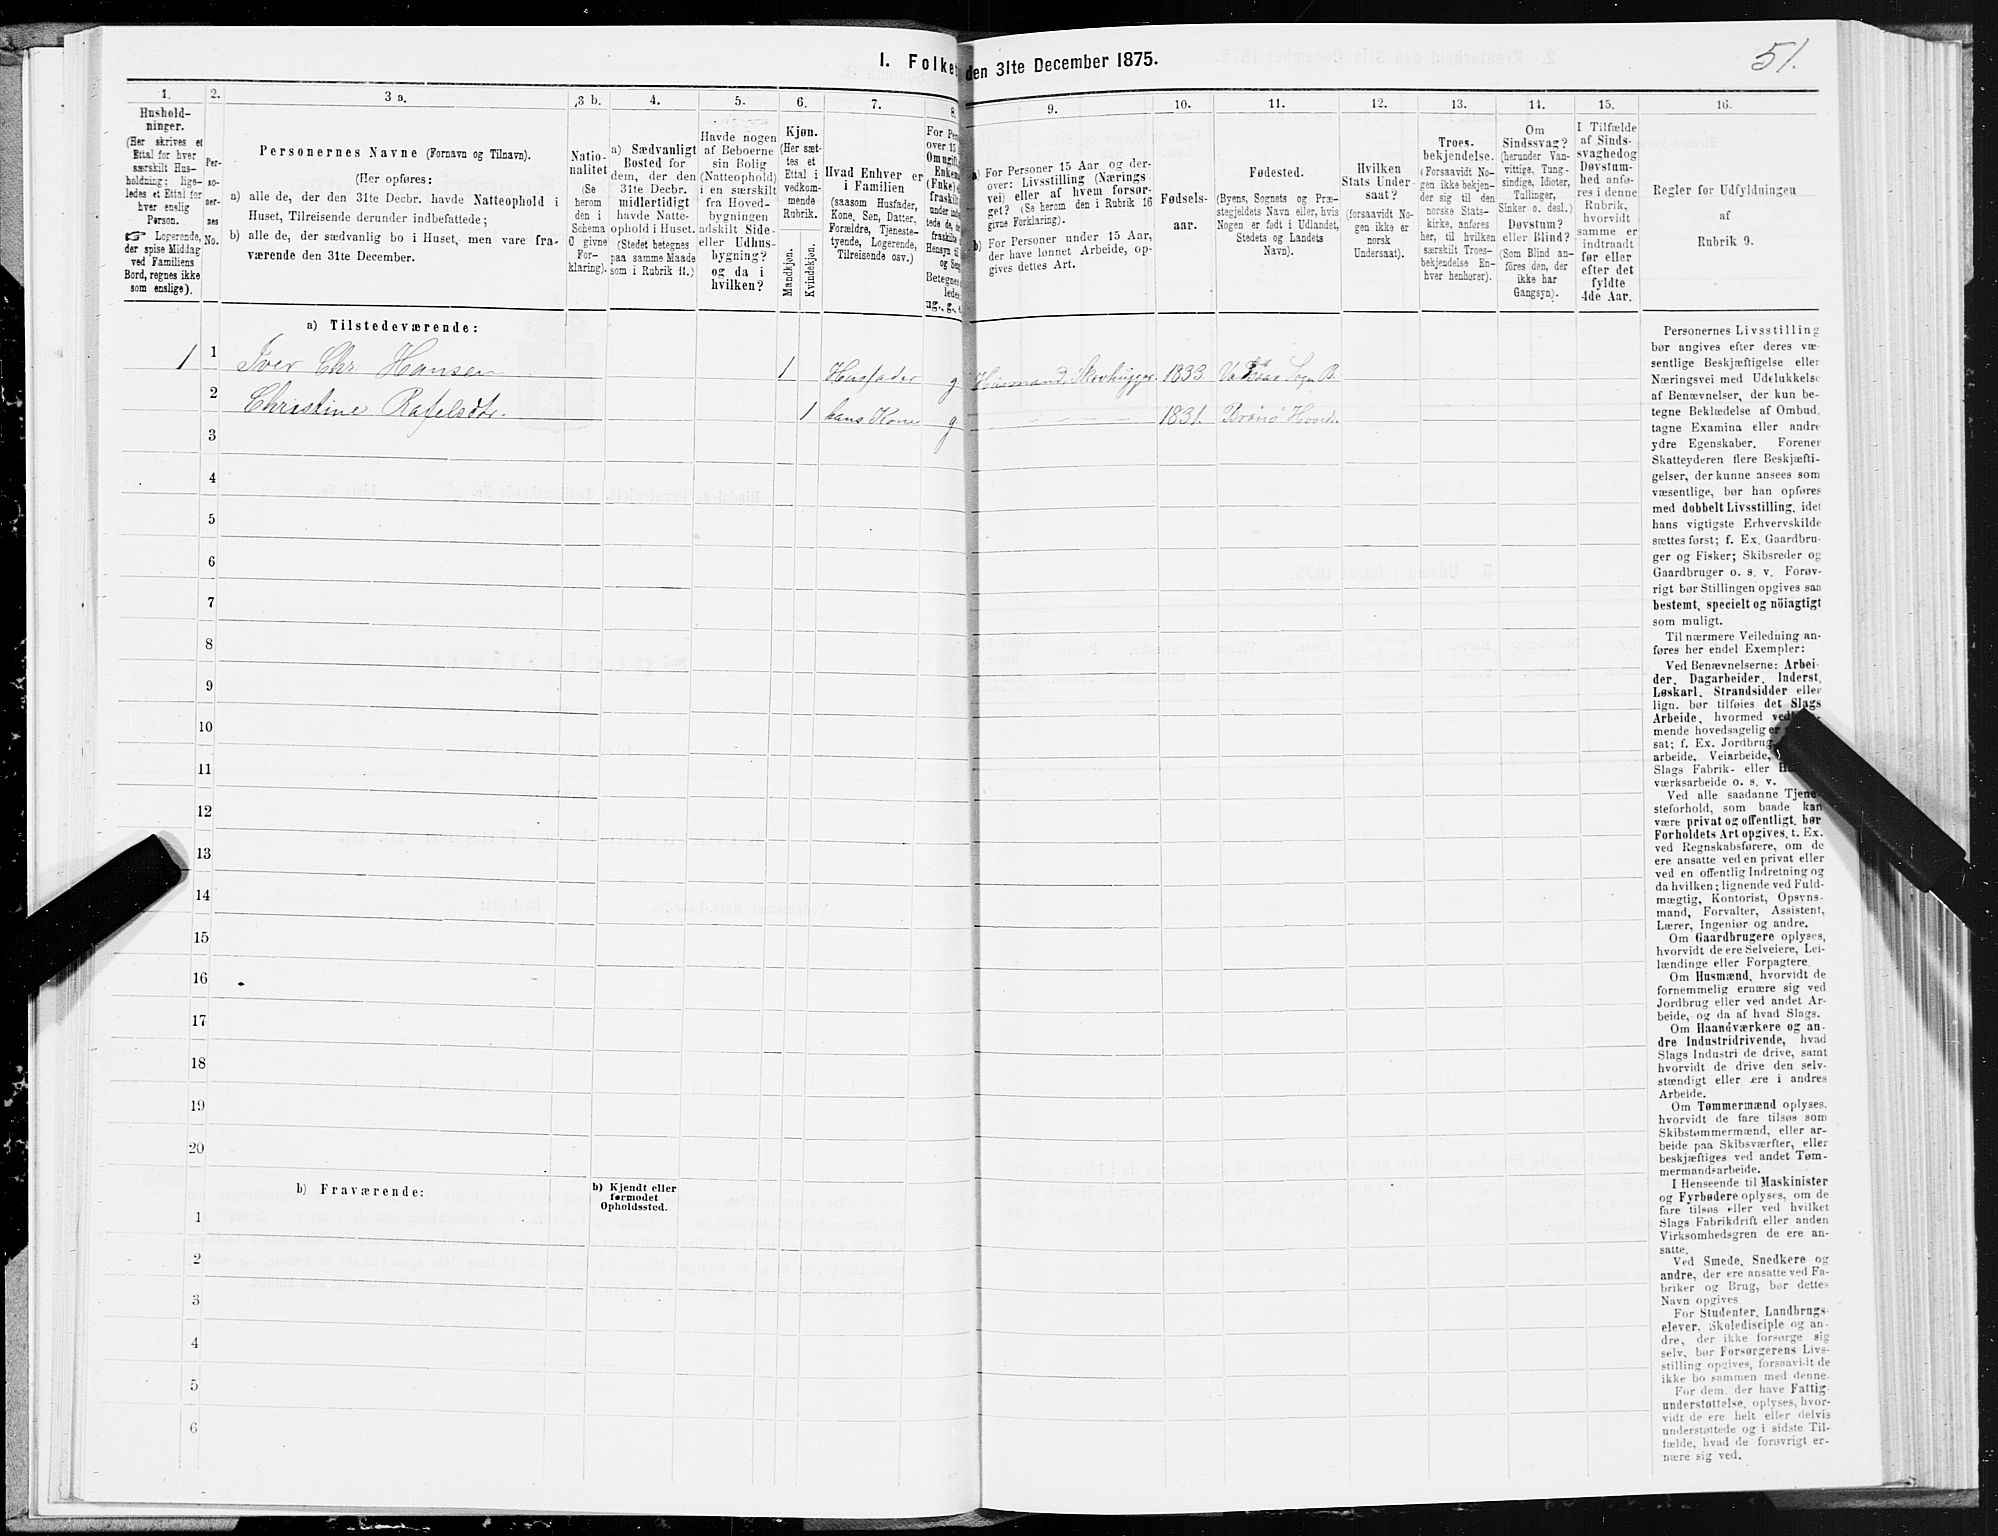 I. Folket
den 31te December 1875.
51.
1.
Hushold-
ninger.
(Her skrives et
Ettal for hver
særskilt Hus-
holdning; lige-
ledes et Ettal for
hver enslig
Person.
☞ Logerende,
der spise Middag
ved Familiens
Bord, regnes ikke
som enslige).
2.
Per-
so-
ner-
nes
No.
3 a.
Personernes Navne (Fornavn og Tilnavn).
(Her opføres:
a) alle de, der den 31te Decbr. havde Natteophold i
Huset, Tilreisende derunder indbefattede;
b) alle de, der sædvanlig bo i Huset, men vare fra-
værende den 31te December.
3 b.
Natio-
nalitet
(Se
herom
den i
Schema
C givne
For-
klaring).
4.
a) Sædvanligt
Bosted for
dem, der den
31te Decbr.
midlertidigt
havde Natte-
ophold i Huset.
(Stedet betegnes
paa samme Maade
som i Rubrik 11.)
5.
Havde nogen
af Beboerne
sin Bolig
(Natteophold)
i en særskilt
fra Hoved-
bygningen
adskilt Side-
eller Udhus-
bygning?
og da i
hvilken?
6.
Kjøn.
(Her sæt-
tes et
Ettal i
vedkom-
mende
Rubrik.
Mandkjøn.
Kvindekjøn.
7.
Hvad Enhver er
i Familien
(saasom Husfader,
Kone, Søn, Datter,
Forældre, Tjeneste-
tyende, Logerende,
Tilreisende osv.)
8.
For Per
over 15
Omugift,
Enkema
(Fnke) e
fraskilt
under ind
tede de, de
fraskilte
Hensyn til
og Sen
Betegnes
lede
ug., g., e
9.
a) For Personer 15 Aar og der-
over: Livsstilling (Nærings
vei) eller af hvem forsør-
get? (Se herom den i Rubrik 16
givne Forklaring).
b) For Personer under 15 Aar,
der have lønnet Arbeide, op-
gives dettes Art.
10.
Fødsels-
aar.
11.
Fødested.
(Byens, Sognets og Præ-
stegjeldets Navn eller, hvis
Nogen er født i Udlandet,
Stedets og Landets
Navn).
12.
Hvilken
Stats Under-
saat?
(forsaavidt No-
gen ikke er
norsk
Undersaat).
13.
Troes-
bekjendelse.
(Forsaavidt No-
gen ikke bekjen-
der sig til den
norske Stats-
kirke, anføres
her, til hvilken
særskilt Troes-
bekjendelse En-
hver henhører).
14.
Om
Sindssvag?
(herunder Van-
vittige, Tung-
sindige, Idioter,
Tullinger,
Sinker o. desl.)
Døvstum?
eller Blind?
(Som Blind an-
føres den, der
ikke har
Gangsyn).
15.
I Tilfælde
af Sinds-
svaghedog
Døvstum-
hed anfø-
res i denne
Rubrik,
hvorvidt
samme er
indtraadt
før eller
efter det
fyldte
4de Aar.
16.
Regler før Udfyldningen
af
Rubrik 9.
a) Tilstedeværende:
1 1 Iver Chr Hansen 1 Husfader g Husmand, Skovhugger. 1833. Sogn B.
2 Christine Rafelsdtr. 1 hans Kone g 1831. Brønø Hoveds.
3
4
5
6
7
8
9
10
11
12
13
14
15
16
17
18
19
20
b) Fraværende:
b) Kjendt eller
formodet
Opholdssted.
1
2
3
4
5
6
Personernes Livsstilling
bør angives efter deres væ-
sentlige Beskjæftigelse eller
Næringsvei med Udelukkelse
af Benævnelser, der kun be-
tegne Beklædelse af Ombud,
tagne Examina eller andre
ydre Egenskaber. Forener
Skatteyderen flere Beskjæfti-
gelser, der kunne ansees som
væsentlige, bør han opføres
med dobbelt Livsstilling, idet
hans vigtigste Erhvervskilde
sættes først; f. Ex. Gaardbru-
ger og Fisker; Skibsreder og
Gaardbruger o. s. v. Forøv-
rigt bør Stillingen opgives saa
bestemt, specielt og nöiagtigt
som muligt.
Til nærmere Veiledning an-
føres her endel Exempler:
Ved Benævnelserne: Arbei-
der, Dagarbeider, Inderst,
Løskarl, Strandsidder eller
lign. bør tilføies det Slags
Arbeide, hvormed ved
mende hovedsagelig er
sat; f. Ex. Jordbrug,
arbeide, Veiarbeide,
Slags Fabrik- eller H
værksarbeide o. s. v.
Ved alle saadanne Tjene-
steforhold, som baade kan
være privat og offentligt, bør
Forholdets Art opgives, t. Ex.
ved Regnskabsførere, om de
ere ansatte ved en privat eller
ved en offentlig Indretning og
da hvilken; lignende ved Fuld-
mægtig, Kontorist, Opsyns-
mand, Forvalter, Assistent,
Lærer, Ingeniør og andre.
Om Gaardbrugere oplyses,
hvorvidt de ere Selveiere, Lei-
lændinge eller Forpagtere.
Om Husmænd, hvorvidt de
fornemmelig ernære sig ved
Jordbrug eller ved andet Ar-
beide, og da af hvad Slags.
Om Haandværkere og an-
dre Industridrivende, hvad
Slags Industri de drive, samt
hvorvidt de drive den selv-
stændigt eller ere i andres
Arbeide.
Om Tømmermænd oplyses,
hvorvidt de fare tilsøs som
Skibstømmermænd, eller ar-
beide paa Skibsværfter, eller
beskjæftiges ved andet Tøm-
mermandsarbeide.
I Henseende til Maskinister
og Fyrbødere oplyses, om de
fare tilsøs eller ved hvilket
Slags Fabrikdrift eller anden
Virksomhedsgren de ere an-
satte.
Ved Smede, Snedkere og
andre, der ere ansatte ved Fa-
briker og Brug, bør dettes
Navn opgives.
For Studenter, Landbrugs-
elever, Skoledisciple og an-
dre, der ikke forsørge sig
selv, bør Forsørgerens Livs-
stilling opgives, forsaavidt de
ikke bo sammen med denne.
For dem, der have Fattig-
understøttelse, oplyses, hvor-
vidt de ere helt eller delvis
understøttede og i sidste Til-
fælde, hvad de forøvrigt er-
nære sig ved.